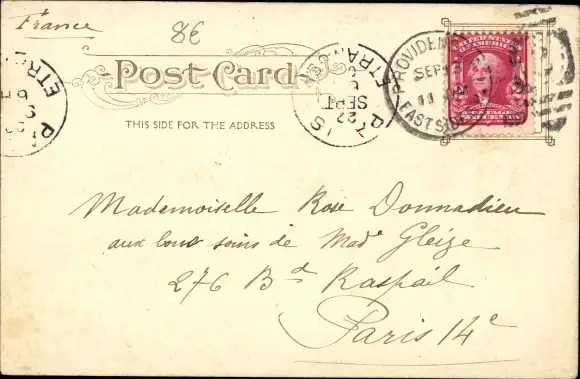 France
8€
Post Card
THIS SIDE FOR THE ADDRESS
PROVIDEN
SEP
11
EAST SIDE
UNITED STATES
ETRA
22
SEPT
ETR
Mademoiselle Rose Donnadieu
aux bons soins de Made Gleize
276 Bd Raspail
Paris 14e